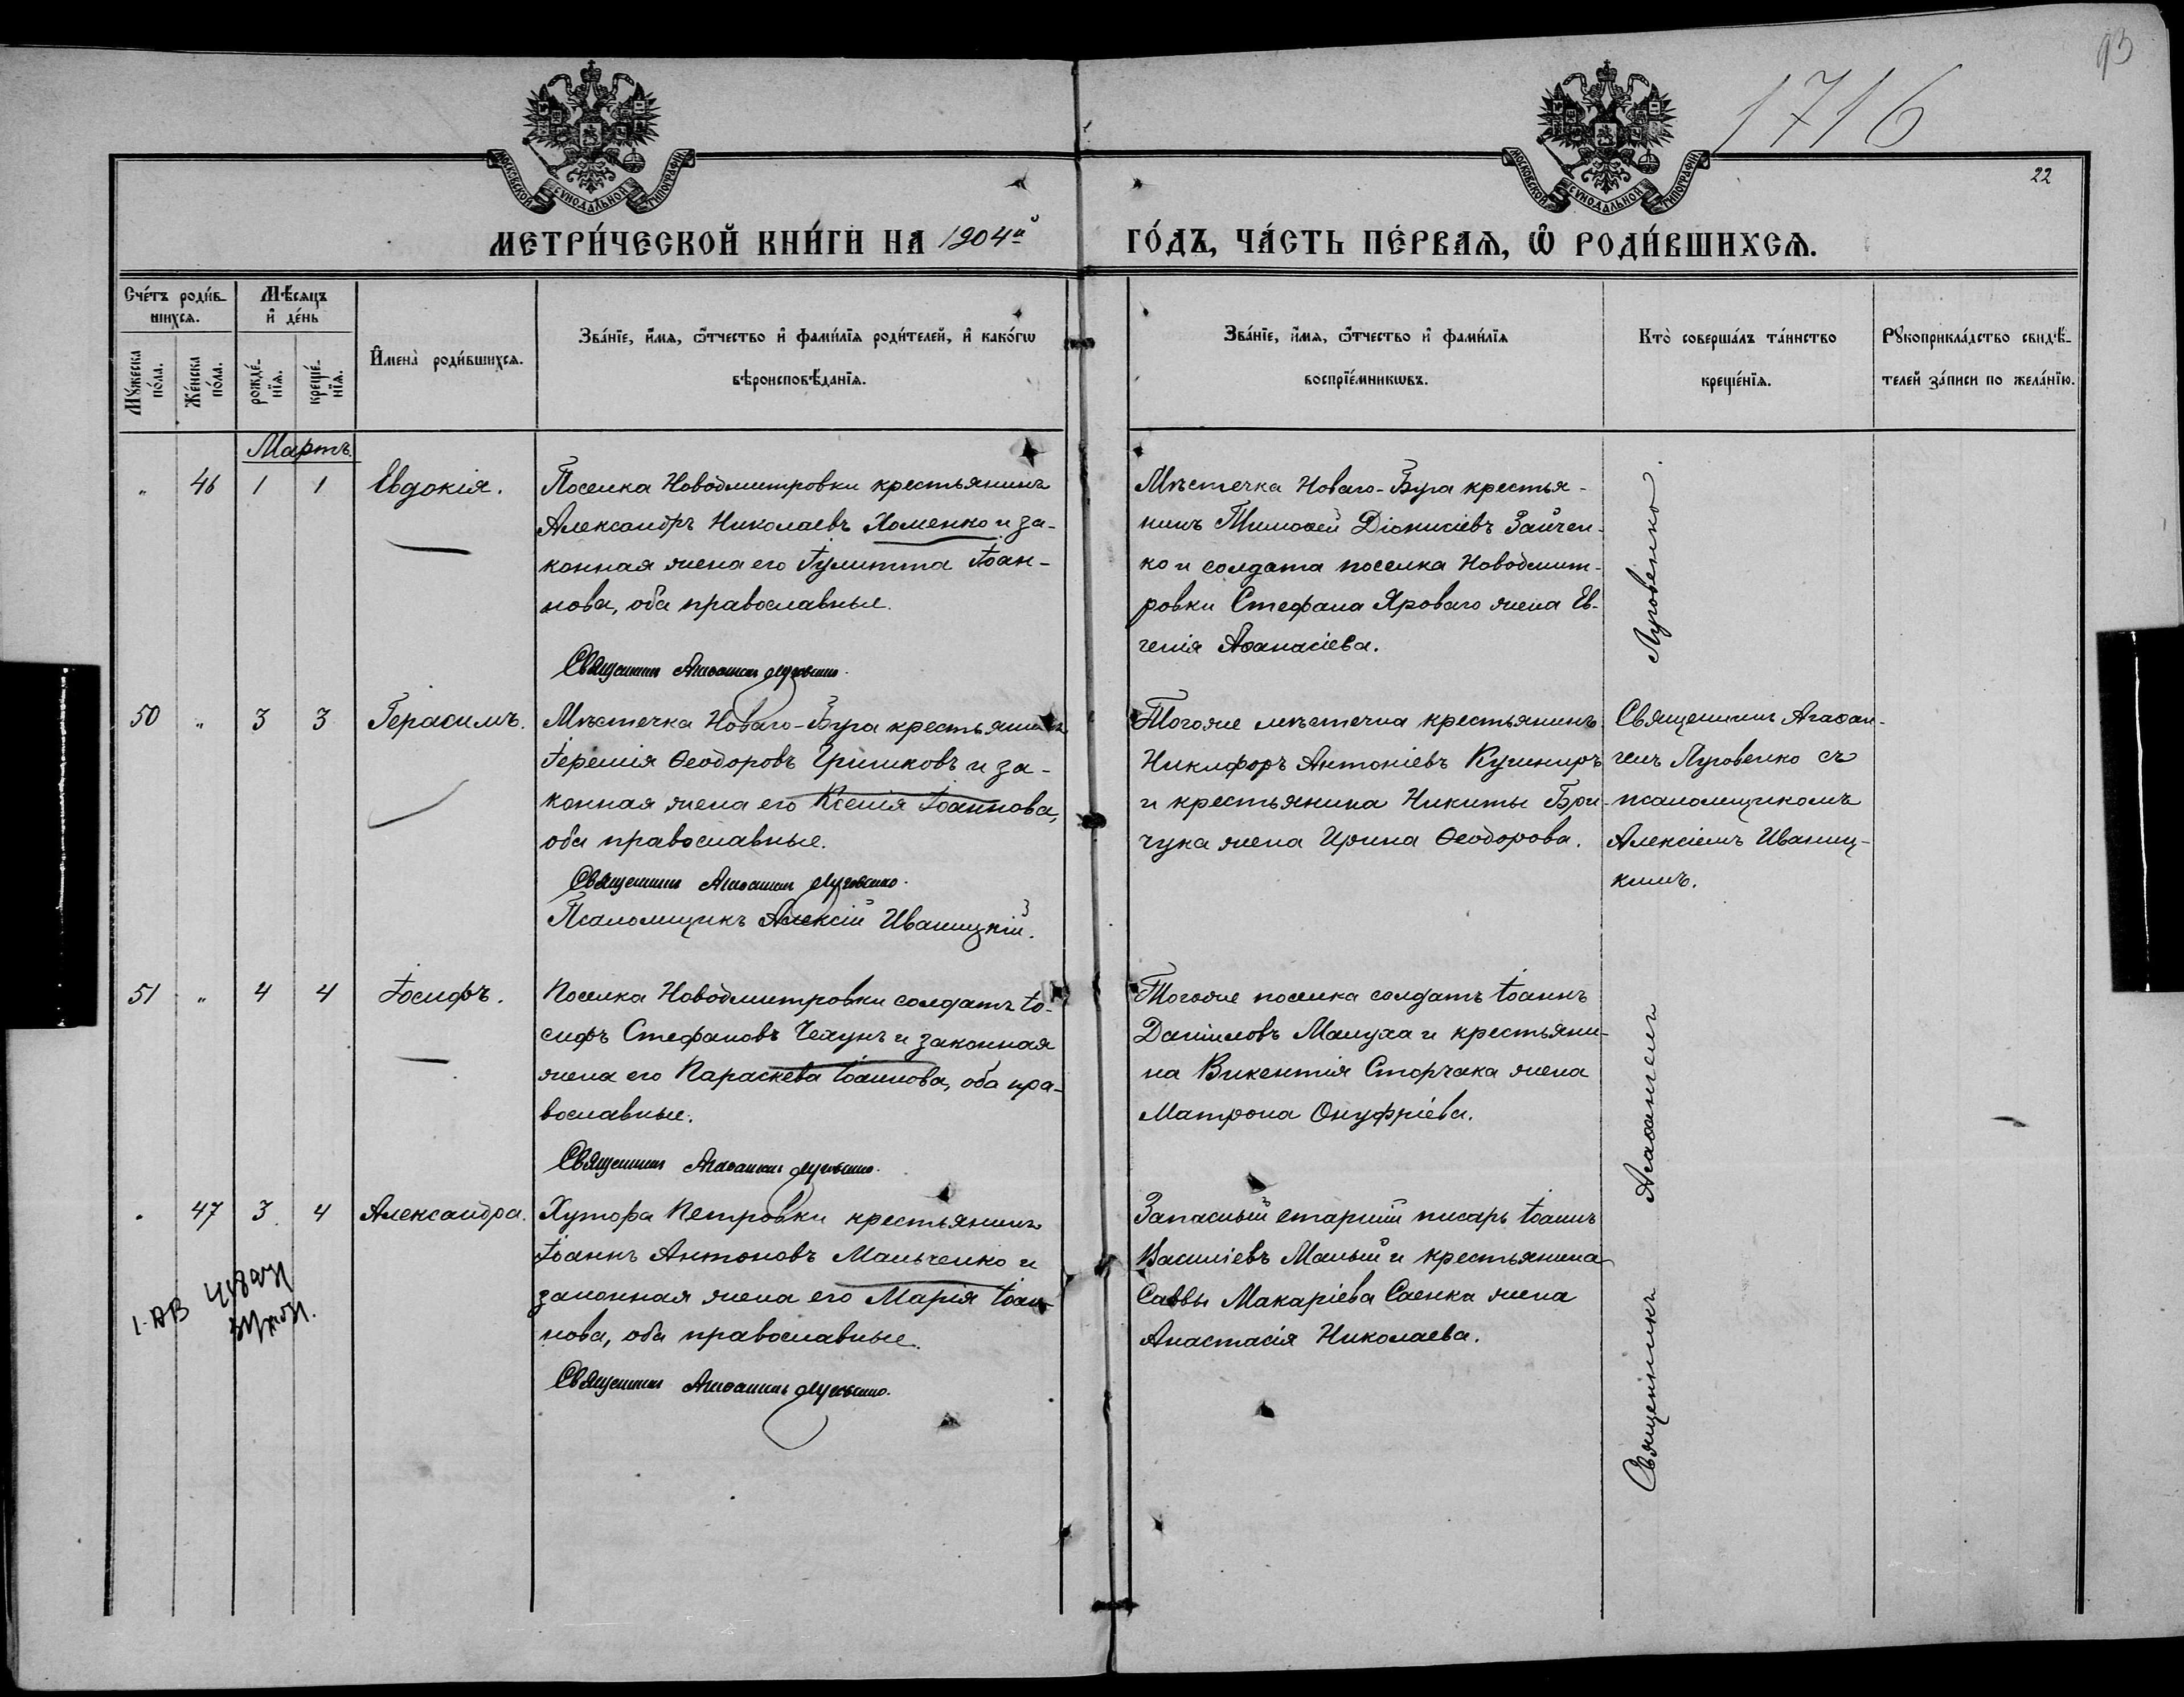 93
1716
22
МОСКОВСКОЙ СѴНОДАЛЬНОЙ ТИПОГРАФІИ.
МОСКОВСКОЙ СѴНОДАЛЬНОЙ ТИПОГРАФІИ.
МЕТРИ́ЧЕСКОЙ КНИ́ГИ НА 1904й
ГО́ДЪ, ЧА́СТЬ ПЕ́РВАѦ, Ѡ РОДИ́ВШИХСѦ.
Сче́тъ роди́в-
шихсѧ.
Мꙋ́жеска
по́ла.
Же́нска
по́ла.
Мѣ́сѧцъ
и҆ де́нь
рожде́-
нїѧ.
креще́-
нїѧ.
И҆мена̀ роди́вшихсѧ.
Зва́нїе, и҆́мѧ, ѻ҆́тчество и҆ фами́лїѧ роди́телей, и҆ како́гѡ
вѣроисповѣ́данїѧ.
Зва́нїе, и҆́мѧ, ѻ҆́тчество и҆ фами́лїѧ
воспрїе́мникѡвъ.
Кто̀ соверша́лъ та́инство
креще́нїѧ.
Рꙋкоприкла́дство свидѣ́-
телей за́писи по жела́нїю.
Мартъ.
" 46 1 1 Евдокія.
Поселка Новодмитровки крестьянинъ
Александръ Николаевъ Хоменко и за-
конная жена его Іулитта Іоан-
нова, оба православные.
Священникъ Агаѳангелъ Луговенко.
Мѣстечка Новаго-Буга крестья-
нинъ Тимоѳей Діонисіевъ Зайчен-
ко и солдата поселка Новодмит-
ровки Стефана Яроваго жена Ев-
генія Аѳанасіева.
50 " 3 3 Герасимъ.
Мѣстечка Новаго-Буга крестьянинъ
Іеремія Ѳеодоровъ Гришковъ и за-
конная жена его Ксенія Іоаннова,
оба православные.
Священникъ Агаѳангелъ Луговенко.
Псаломщикъ Алексій Иваницкій.
Тогоже мѣстечка крестьянинъ
Никифоръ Антоніевъ Кушниръ
и крестьянина Никиты Бри-
чука жена Ирина Ѳеодорова.
Священникъ Агаѳан-
гелъ Луговенко съ
псаломщикомъ
Алексіемъ Иваниц-
кимъ.
51 " 4 4 Іосифъ.
Поселка Новодмитровки солдатъ Іо-
сифъ Стефановъ Чехунъ и законная
жена его Параскева Іоаннова, оба пра-
вославные.
Священникъ Агаѳангелъ Луговенко.
Тогоже поселка солдатъ Іоаннъ
Даніиловъ Малуха и крестьяни-
на Викентія Сторчака жена
Матрона Онуфріева.
" 47 3 4 Александра.
Хутора Петровки крестьянинъ
Іоаннъ Антоновъ Мальченко и
законная жена его Марія Іоан-
нова, оба православные.
Священникъ Агаѳангелъ Луговенко.
Запасный старшій писарь Іоаннъ
Василіевъ Малый и крестьянина
Саввы Макаріева Саенка жена
Анастасія Николаева.
Священникъ Агаѳангелъ Луговенко.